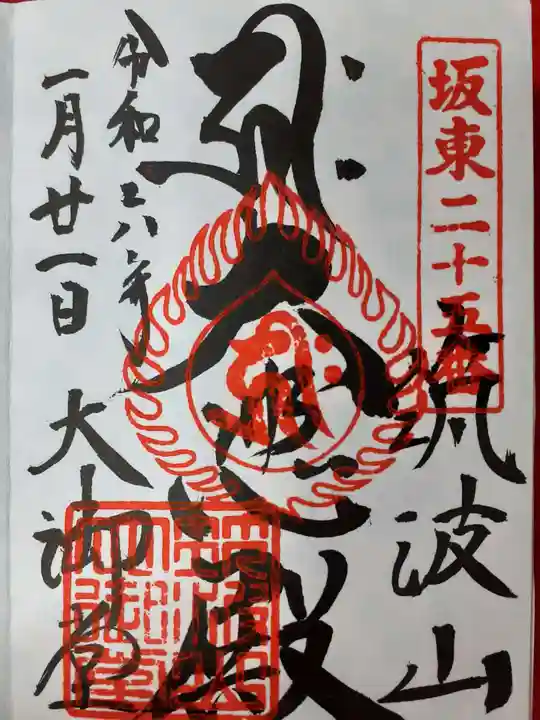 坂東二十五番
筑波山
大悲殿
令和六年
一月廿一日
大御堂